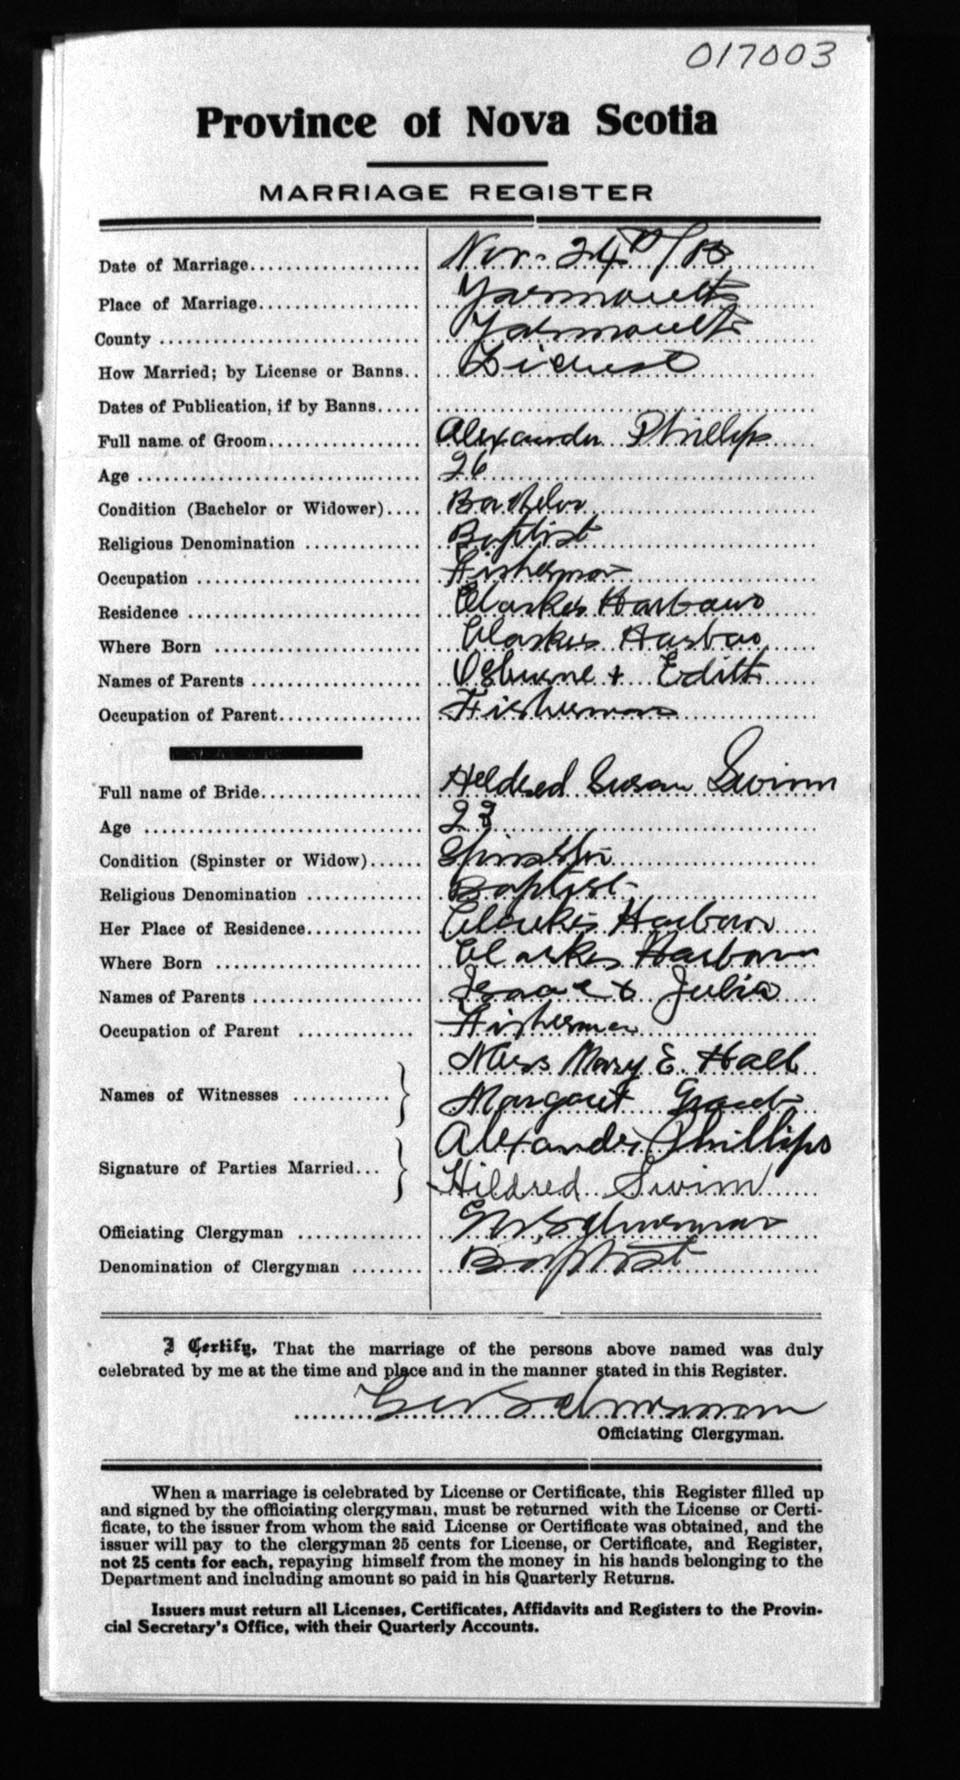 017003
Province of Nova Scotia
MARRIAGE REGISTER
Date of Marriage Nov. 24th/
Place of Marriage Yarmouth
County Yarmouth
How Married; by License or Banns License
Dates of Publication, if by Banns
Full name of Groom Alexander Phillips
Age 26
Condition (Bachelor or Widower) Bachelor
Religious Denomination Baptist
Occupation Fisherman
Residence Clarkes Harbour
Where Born Clarkes Harbour
Names of Parents Osburne + Edith
Occupation of Parent Fisherman
Full name of Bride Hildred Susan Swim
Age 23
Condition (Spinster or Widow) Spinster
Religious Denomination Baptist
Her Place of Residence Clarkes Harbour
Where Born Clarkes Harbour
Names of Parents Isaac & Julia
Occupation of Parent Fisherman
Names of Witnesses Miss Mary E. Hall
Margaret
Signature of Parties Married Alexander Phillips
Hildred Swim
Officiating Clergyman
Denomination of Clergyman Baptist
I Certify, That the marriage of the persons above named was duly
celebrated by me at the time and place and in the manner stated in this Register.
Officiating Clergyman.
When a marriage is celebrated by License or Certificate, this Register filled up
and signed by the officiating clergyman, must be returned with the License or Certi-
ficate, to the issuer from whom the said License or Certificate was obtained, and the
issuer will pay to the clergyman 25 cents for License, or Certificate, and Register,
not 25 cents for each, repaying himself from the money in his hands belonging to the
Department and including amount so paid in his Quarterly Returns.
Issuers must return all Licenses, Certificates, Affidavits and Registers to the Provin-
cial Secretary's Office, with their Quarterly Accounts.